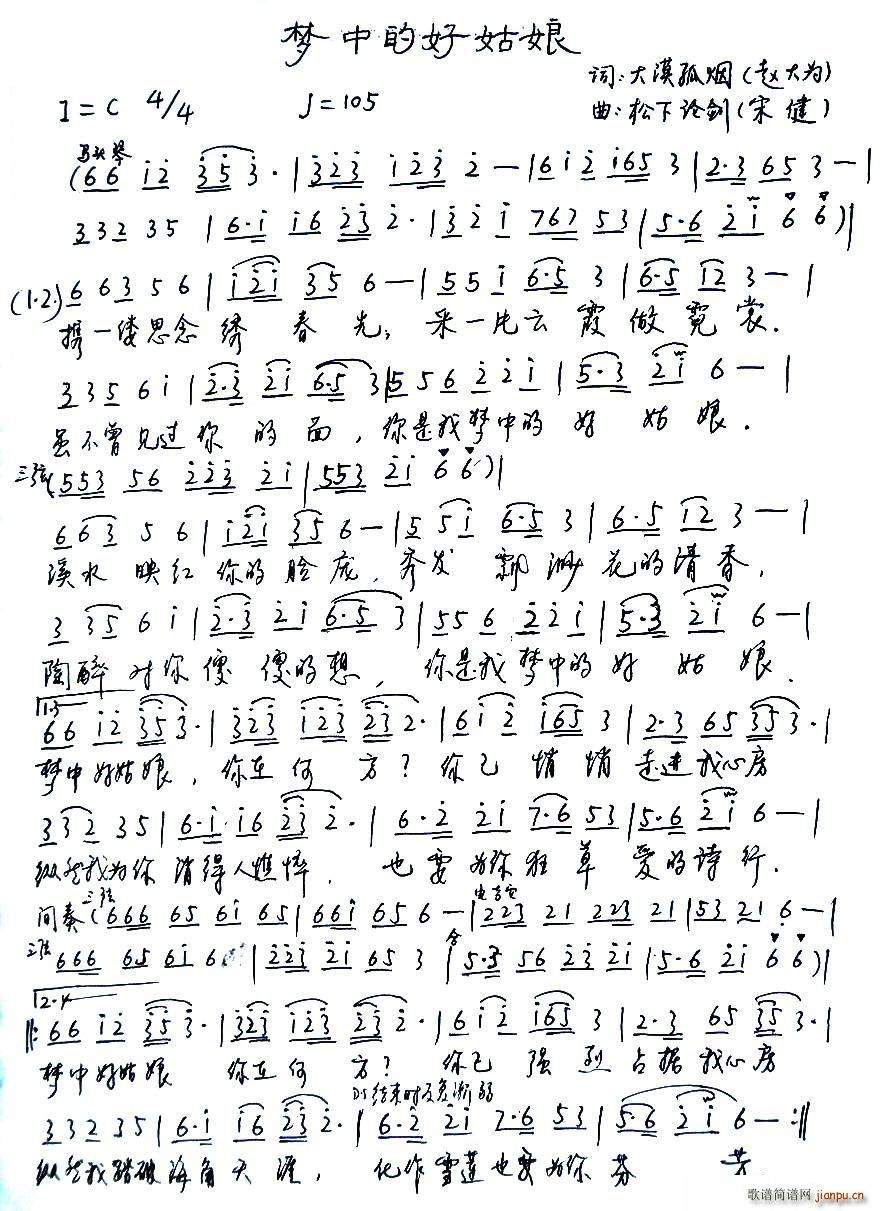 梦中的好姑娘
词:大漠孤烟(赵大为)
1=C 4/4 ♩=105
曲:松下论剑(宋健)
马头琴
(66 i2 353·|323 123 2—|6i2 i65 3|2·3 65 3—|
332 35|6·i i6 23 2·|32i 767 53|5·6 2i 6 6)|
(1.2.) 6 63 5 6|i2i 35 6—|55i 6·5 3|6·5 i2 3—|
携一缕思念绣春光,采一片云霞做霓裳.
335 6i|2·3 2i 6·5 3|556 22i|5·3 2i 6—|
虽不曾见过你的面,你是我梦中的好姑娘.
三弦(553 56 223 2i|553 2i 6 6)|
663 5 6|i2i 35 6—|5 5i 6·5 3|6·5 i2 3—|
溪水映红你的脸庞,秀发飘渺花的清香,
335 6i|2·3 2i 6·5 3|556 22i|5·3 2i 6—|
陶醉对你傻傻的想,你是我梦中的好姑娘.
1.3
66 i2 353·|323 123 23 2·|6i2 i65 3|2·3 65 353·|
梦中好姑娘,你在何方?你已悄悄走进我心房
332 35|6·i i6 23 2·|6·2 2i 7·6 53|5·6 2i 6—|
纵然我为你消得人憔悴,也要为你狂草爱的诗行.
三弦 电吉它
间奏(666 65 6i 65|66i 65 6—|223 21 223 21|53 21 6—|
三弦 666 65 6i 6|223 2i 65 3|合 5·3 56 23 2i|5·6 2i 6 6)|
2.4
‖:66 i2 353·|323 123 23 2·|6i2 i65 3|2·3 65 353·|
梦中好姑娘 你在何方?你已强烈占据我心房
DS结束时反复渐弱
332 35|6·i i6 23 2·|6·2 2i 7·6 53|5·6 2i 6—:‖
纵然我踏破海角天涯,化作雪莲也要为你芬芳
歌谱简谱网 jianpu.cn